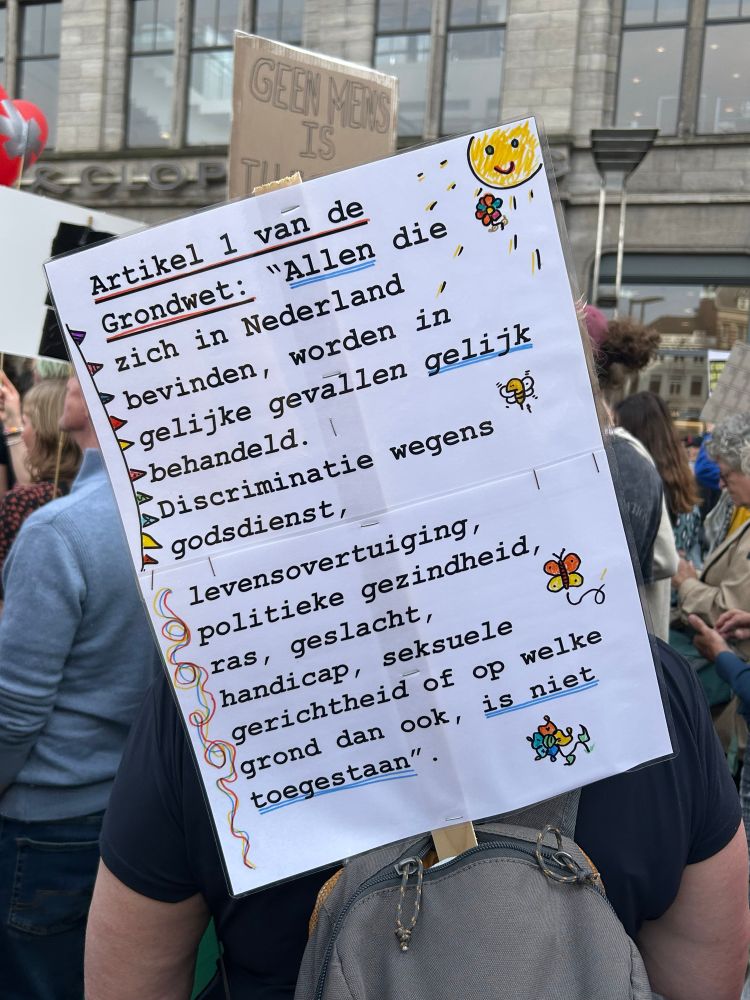 GEEN MENS
IS
Artikel 1 van de
Grondwet: "Allen die
zich in Nederland
bevinden, worden in
gelijke gevallen gelijk
behandeld.
Discriminatie wegens
godsdienst,
levensovertuiging,
politieke gezindheid,
ras, geslacht,
handicap, seksuele
gerichtheid of op welke
grond dan ook, is niet
toegestaan".